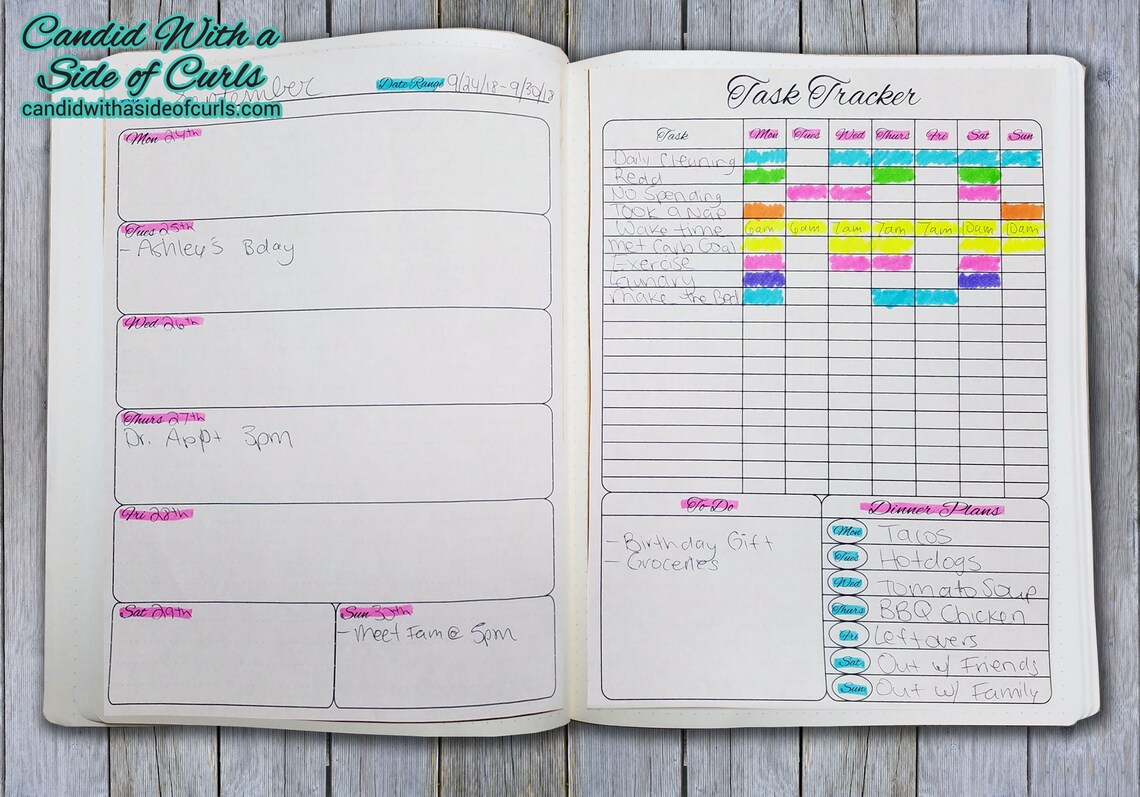 Candid With a
Side of Curls
candidwithasideofcurls.com
September
Date Range 9/24/18-9/30/18
Mon 24th
Tues 25th
- Ashley's Bday
Wed 26th
Thurs 27th
Dr. Appt 3pm
Fri 28th
Sat 29th
Sun 30th
- Meet Fam @ 5pm
Task Tracker
Task Mon Tues Wed Thurs Fri Sat Sun
Daily Cleaning
Read
No Spending
Took a Nap
Wake time 6am 6am 7am 7am 7am 10am 10am
Met Carb Goal
Exercise
Laundry
Make the Bed
To Do
- Birthday Gift
- Groceries
Dinner Plans
Mon Tacos
Tues Hotdogs
Wed Tomato Soup
Thurs BBQ Chicken
Fri Leftovers
Sat Out w/ Friends
Sun Out w/ Family